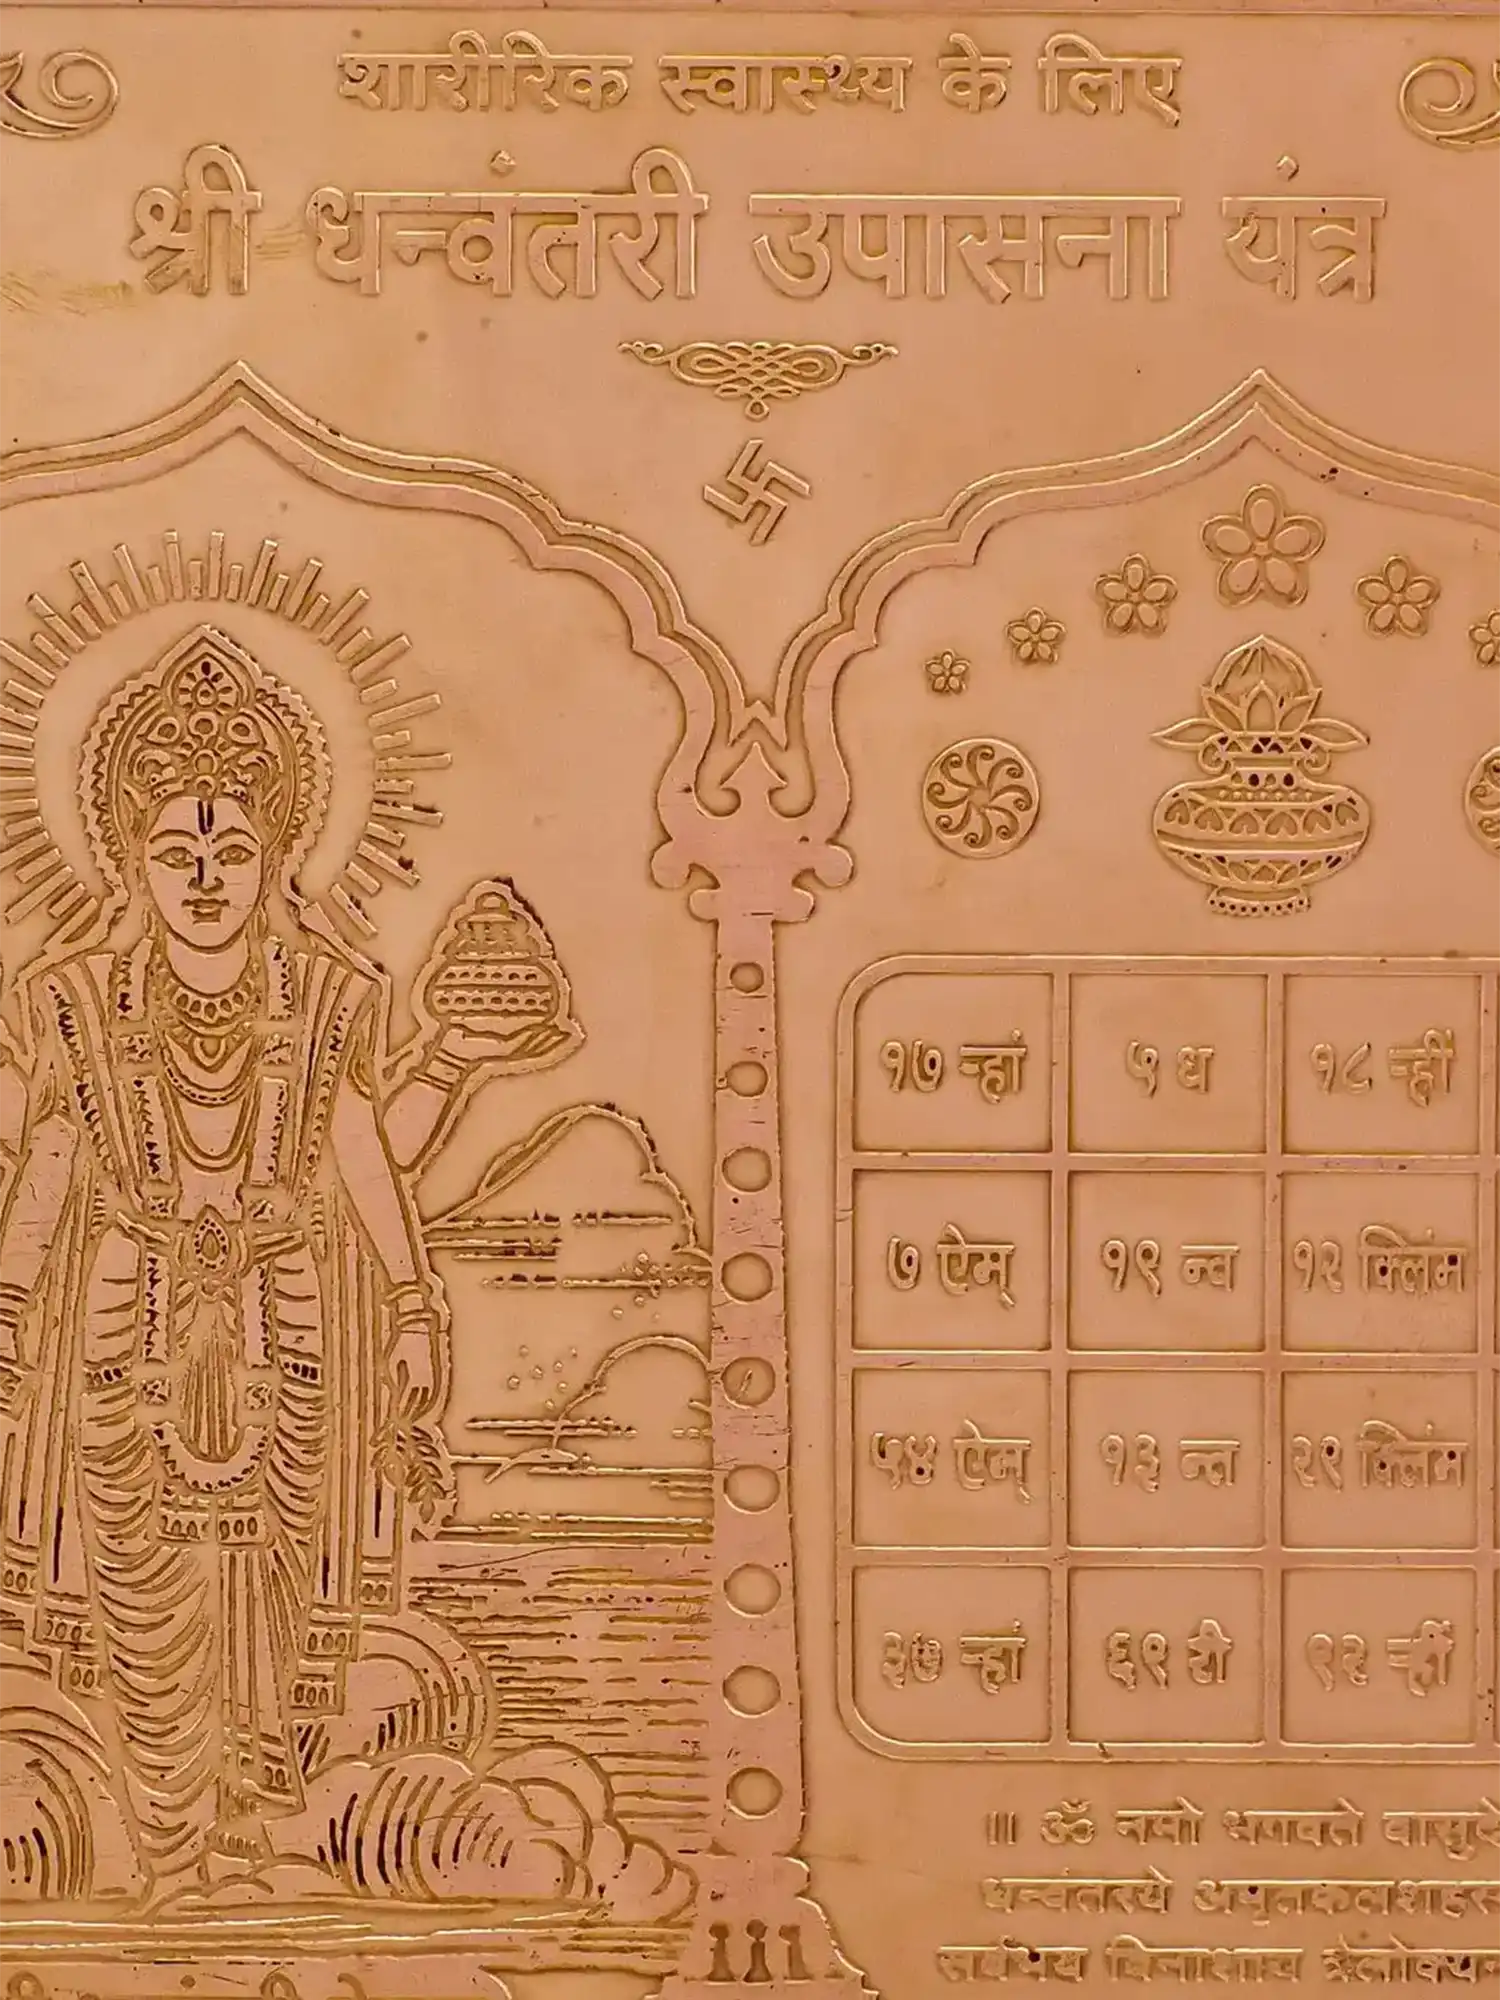 शारीरिक स्वास्थ्य के लिए
श्री धन्वंतरी उपासना यंत्र
१७ ऱ्हां ५ ध १८ ऱ्हीं
७ ऐम् १९ न्व १२ क्लिंम
५४ ऐम् १३ न्त २९ क्लिंम
३७ ऱ्हां ६९ री ९२ ऱ्हीं
॥ ॐ नमो भगवते
धन्वंतरये
सर्वभय विनाशाय